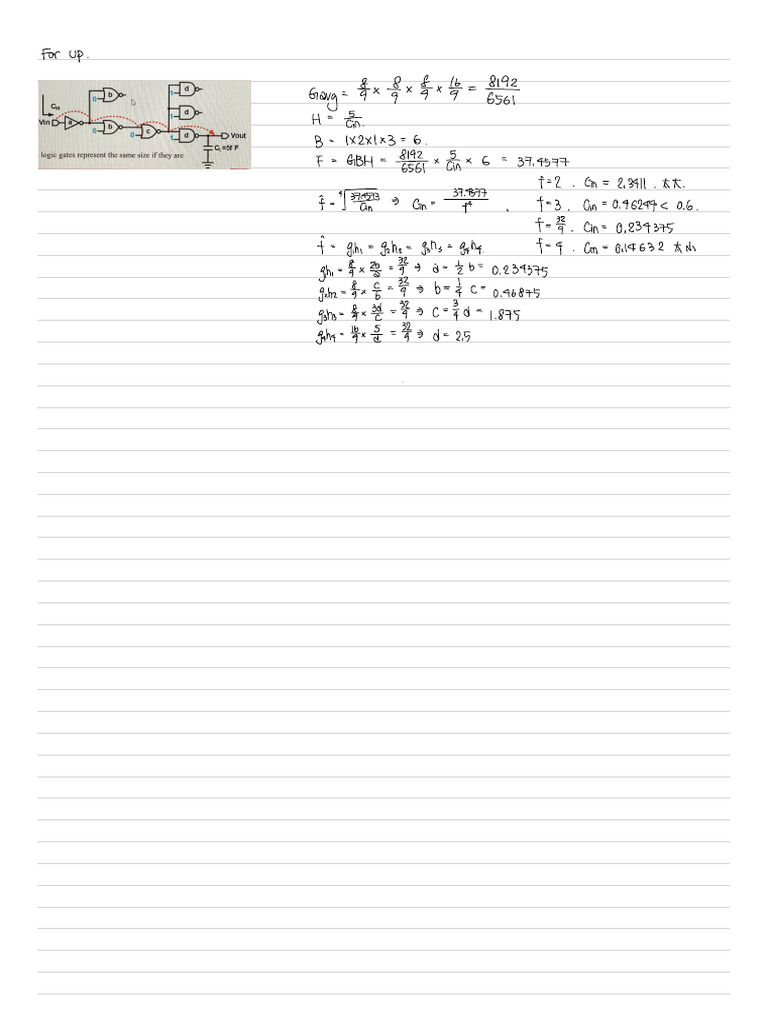 For up.
Cin
Vin
a
0
b
0
b
0
c
1
d
1
1
d
Vout
CL=5f F
logic gates represent the same size if they are
Gavg = 8/9 × 8/9 × 8/9 × 16/9 = 8192/6561
H = 5/Cin.
B = 1×2×1×3 = 6.
F = GBH = 8192/6561 × 5/Cin × 6 = 37.4577
f=2 . Cin = 2.3411 . 太大.
f=3 . Cin = 0.46244 < 0.6.
f=32/9 . Cin = 0.234375
f=4 . Cin = 0.14632 太小
f̂ = g₁h₁ = g₂h₂ = g₃h₃ = g₄h₄.
g₁h₁ = 8/9 × 2b/a = 32/9 ⇒ a = 1/2 b = 0.234375
g₂h₂ = 8/9 × c/b = 32/9 ⇒ b = 1/4 c = 0.46875
g₃h₃ = 8/9 × 3d/c = 32/9 ⇒ c = 3/4 d = 1.875
g₄h₄ = 16/9 × 5/d = 32/9 ⇒ d = 2.5